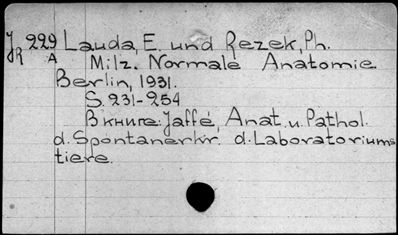 J 229 Lauda, E. und Rezek, Ph.
R A Milz. Normale Anatomie
Berlin, 1931.
S. 231-254
В книге: Jaffé, Anat. u. Pathol.
d. Spontanerkr. d. Laboratoriums
tiere.